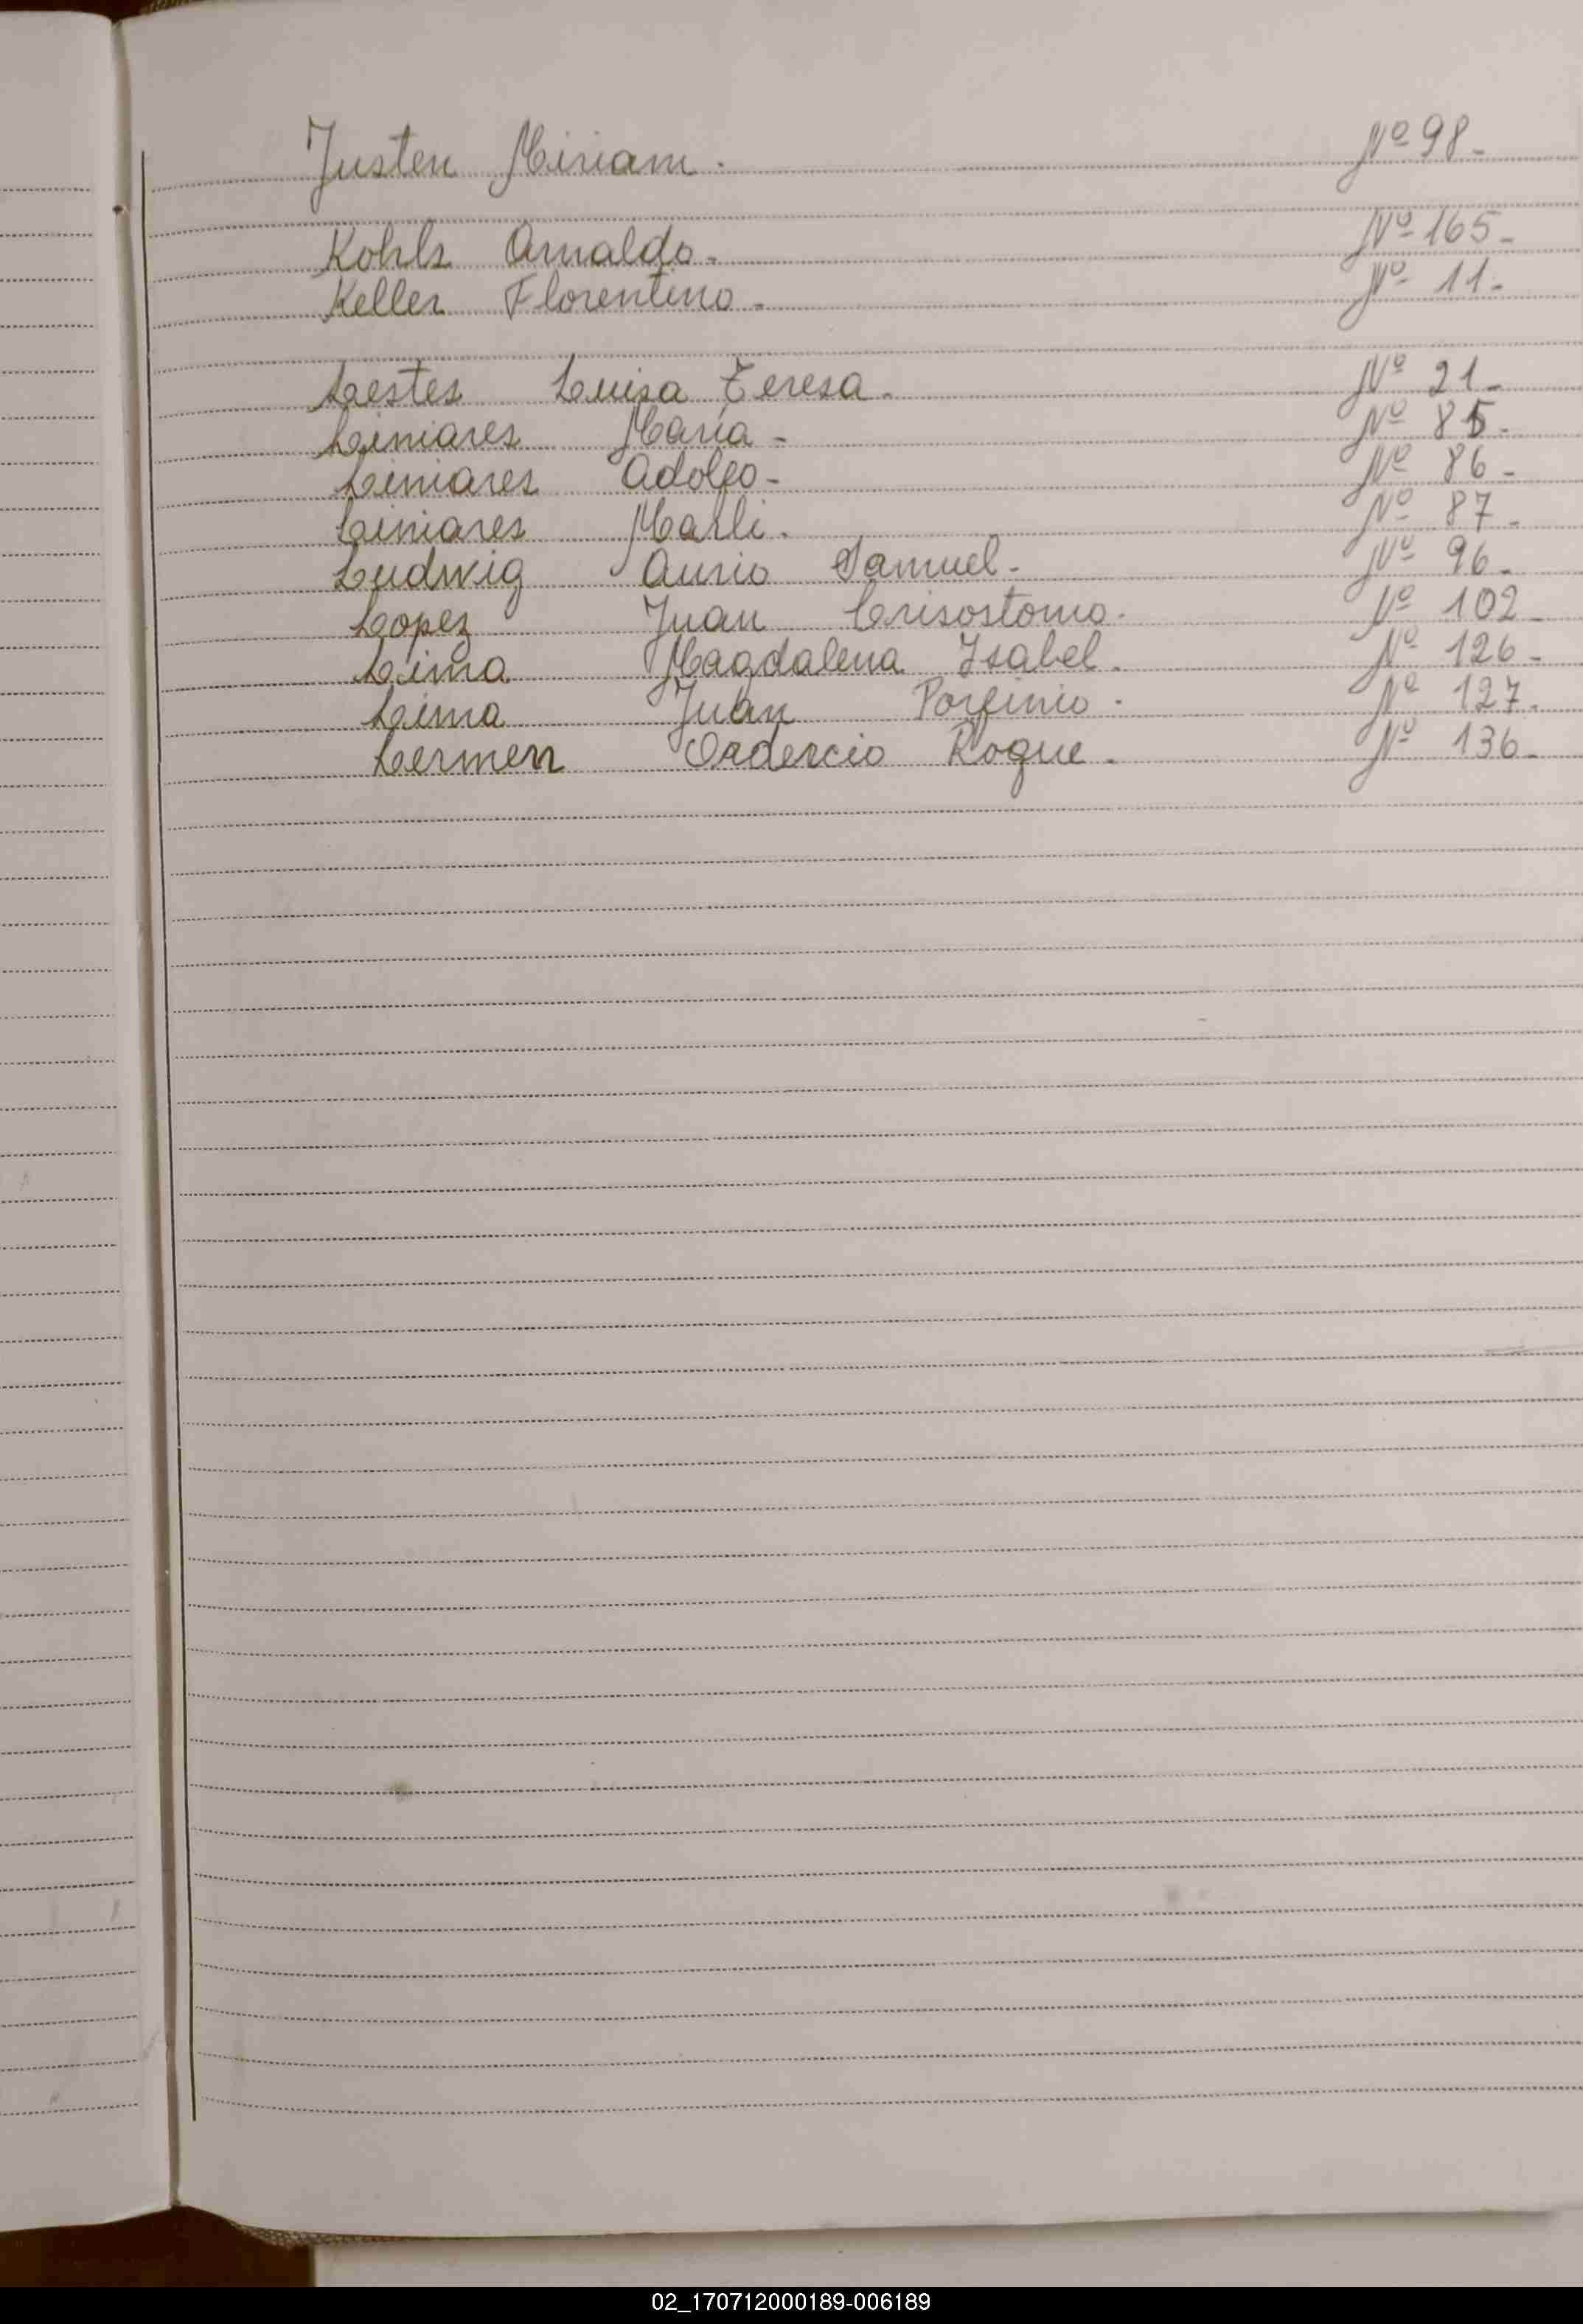 Justen Miriam. Nº 98-
Kohls Arnaldo. Nº 165-
Keller Florentino- Nº 11-
Lestes Luisa Teresa. Nº 21-
Liniares María- Nº 85-
Liniares Adolfo- Nº 86-
Liniares Marli. Nº 87-
Ludwig Aurio Samuel- Nº 96-
Lopez Juan Crisostomo. Nº 102-
Lima Magdalena Isabel. Nº 126-
Lima Juan Porfirio. Nº 127.
Lermen Roque. Nº 136-
02_170712000189-006189